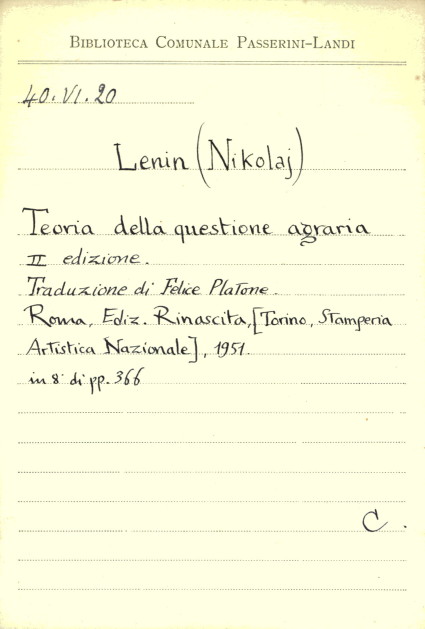 BIBLIOTECA COMUNALE PASSERINI-LANDI
40.VI.20
Lenin (Nikolaj)
Teoria della questione agraria
II edizione.
Traduzione di Felice Platone.
Roma, Ediz. Rinascita, [Torino, Stamperia
Artistica Nazionale], 1951.
in 8° di pp. 366
C.